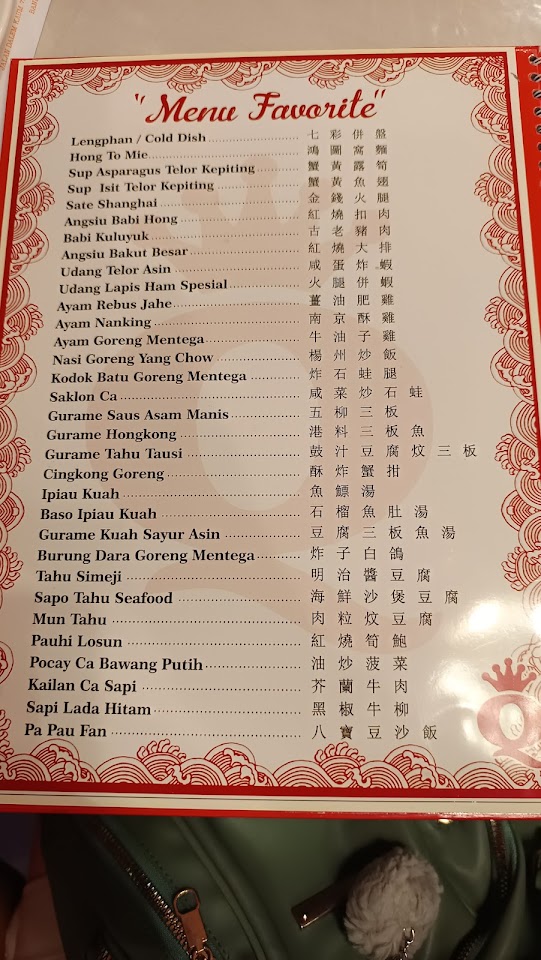 "Menu Favorite"
Lengphan / Cold Dish 七彩併盤
Hong To Mie 鴻圖窩麵
Sup Asparagus Telor Kepiting 蟹黃露筍
Sup Isit Telor Kepiting 蟹黃魚翅
Sate Shanghai 金錢火腿
Angsiu Babi Hong 紅燒扣肉
Babi Kuluyuk 古老豬肉
Angsiu Bakut Besar 紅燒大排
Udang Telor Asin 咸蛋炸蝦
Udang Lapis Ham Spesial 火腿併蝦
Ayam Rebus Jahe 薑油肥雞
Ayam Nanking 南京酥雞
Ayam Goreng Mentega 牛油子雞
Nasi Goreng Yang Chow 楊州炒飯
Kodok Batu Goreng Mentega 炸石蛙腿
Saklon Ca 咸菜炒石蛙
Gurame Saus Asam Manis 五柳三板
Gurame Hongkong 港料三板魚
Gurame Tahu Tausi 鼓汁豆腐炆三板
Cingkong Goreng 酥炸蟹拑
Ipiau Kuah 魚鰾湯
Baso Ipiau Kuah 石榴魚肚湯
Gurame Kuah Sayur Asin 豆腐三板魚湯
Burung Dara Goreng Mentega 炸子白鴿
Tahu Simeji 明治醬豆腐
Sapo Tahu Seafood 海鮮沙煲豆腐
Mun Tahu 肉粒炆豆腐
Pauhi Losun 紅燒筍鮑
Pocay Ca Bawang Putih 油炒菠菜
Kailan Ca Sapi 芥蘭牛肉
Sapi Lada Hitam 黑椒牛柳
Pa Pau Fan 八寶豆沙飯